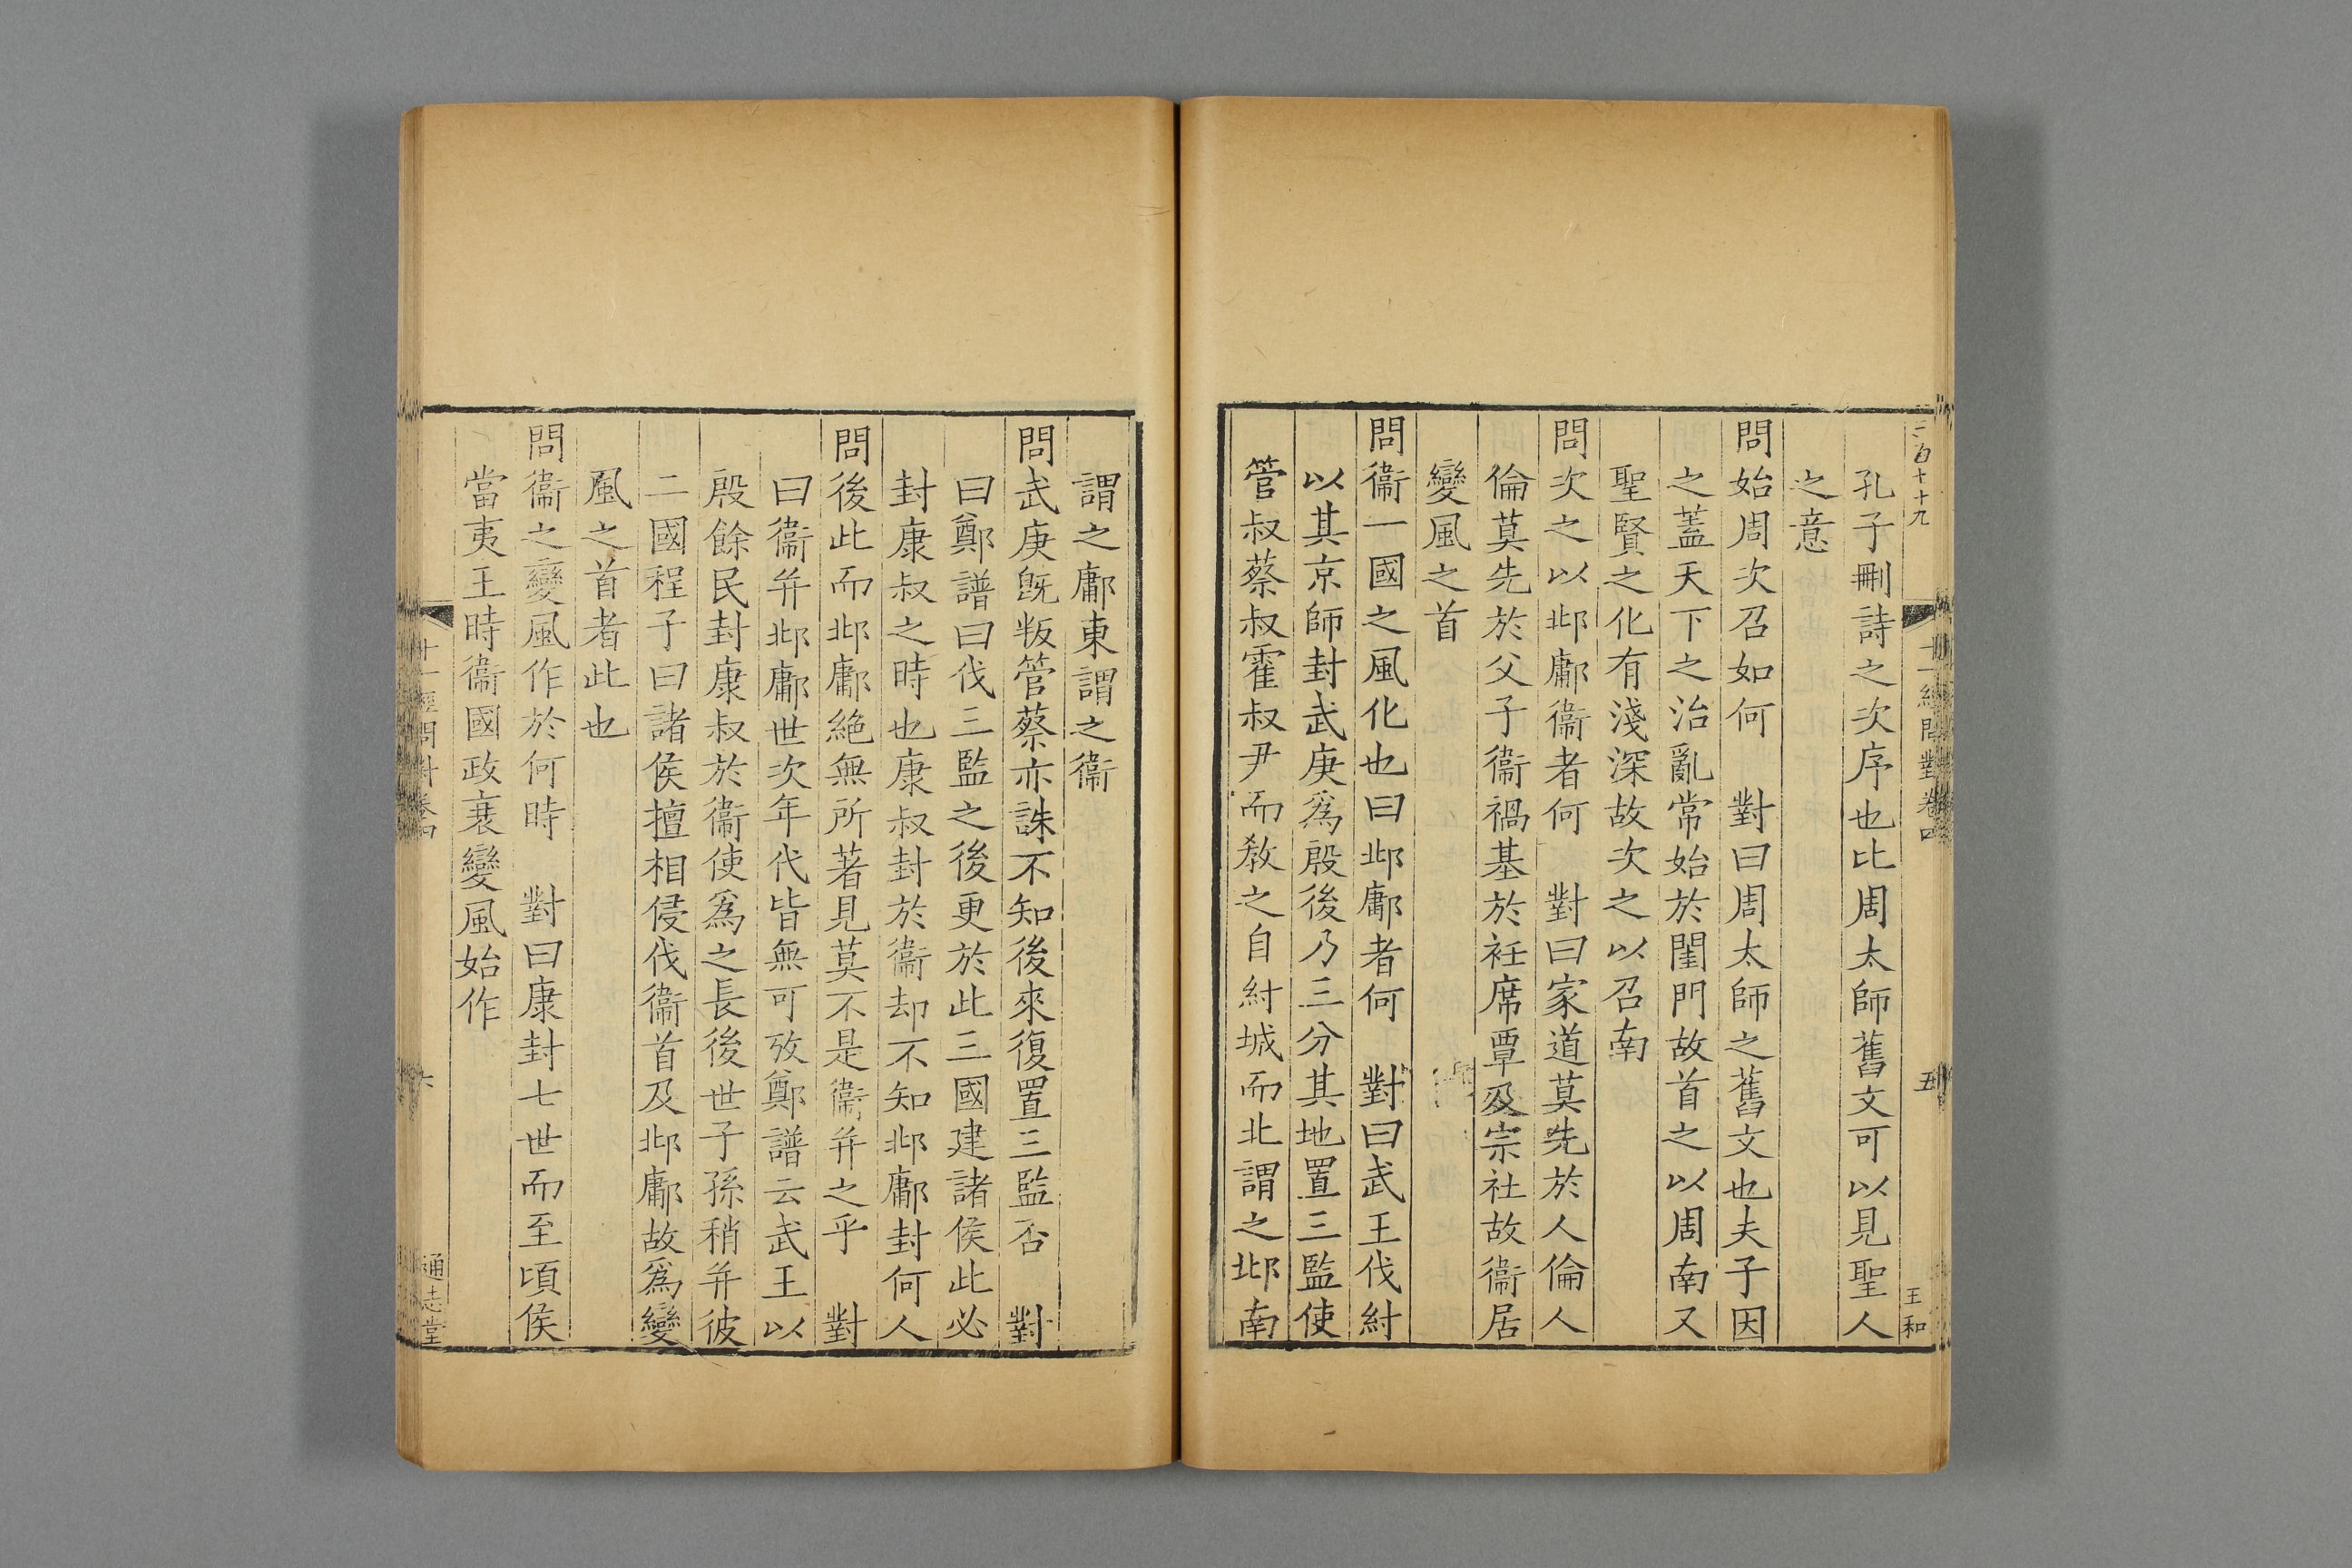 十一經問對卷四
五
王和
孔子刪詩之次序也比周太師舊文可以見聖人
之意
問始周次召如何　對曰周太師之舊文也夫子因
之蓋天下之治亂常始於閨門故首之以周南又
聖賢之化有淺深故次之以召南
問次之以邶鄘衞者何　對曰家道莫先於人倫人
倫莫先於父子衞禍基於衽席覃及宗社故衞居
變風之首
問衞一國之風化也曰邶鄘者何　對曰武王伐紂
以其京師封武庚爲殷後乃三分其地置三監使
管叔蔡叔霍叔尹而敎之自紂城而北謂之邶南
謂之鄘東謂之衞
問武庚旣叛管蔡亦誅不知後來復置三監否　對
曰鄭譜曰伐三監之後更於此三國建諸侯此必
封康叔之時也康叔封於衞却不知邶鄘封何人
問後此而邶鄘絶無所著見莫不是衞并之乎　對
曰衞并邶鄘世次年代皆無可攷鄭譜云武王以
殷餘民封康叔於衞使爲之長後世子孫稍并彼
二國程子曰諸侯擅相侵伐衞首及邶鄘故爲變
風之首者此也
問衞之變風作於何時　對曰康封七世而至頃侯
當夷王時衞國政衰變風始作
十一經問對卷四
六
通志堂